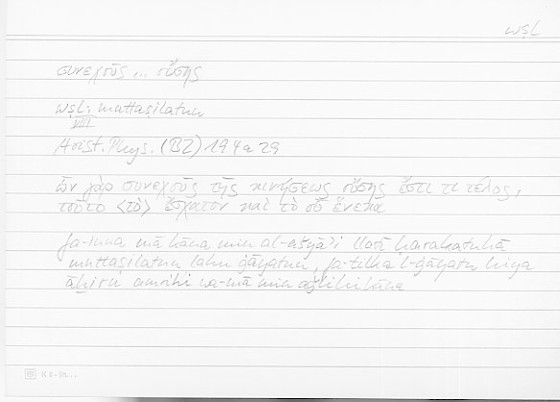 wṣl
συνεχοῦς ... οὔσης
wṣl: muttaṣilatun
VIII
Arist. Phys. (B2) 194a29
ὧν γὰρ συνεχοῦς τῆς κινήσεως οὔσης ἔστι τι τέλος,
τοῦτο <τὸ> ἔσχατον καὶ τὸ οὗ ἕνεκα
fa-inna mā kāna min al-ašyāʾi llatī ḥarakatuhā
muttaṣilatun lahu ġāyatun, fa-tilka l-ġāyatu hiya
āḫiru amrihi wa-mā min aǧlihi kāna